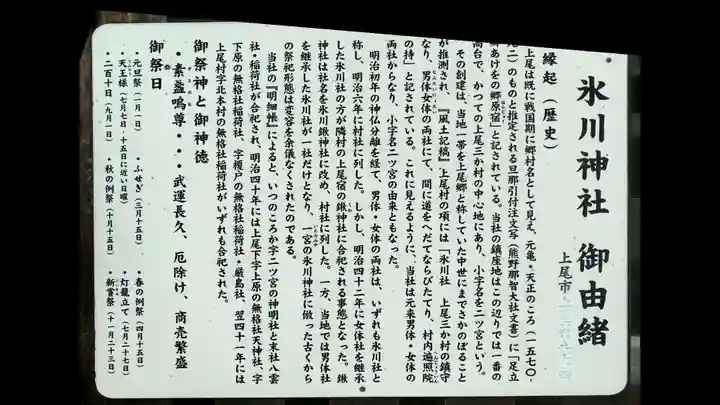 氷川神社 御由緒
上尾市
縁起（歴史）
上尾は既に戦国期に郷村名として見え、元亀・天正のころ（一五七〇-
九二）のものと推定される旦那引付注文写（熊野那智大社文書）に「足立
あけをの郷原宿」と記されている。当社の鎮座地はこの辺りでは一番の
高台で、かつての上尾三か村の中心地にあり、小字名を二ツ宮という。
その創建は、当地一帯を上尾郷と称していた中世にまでさかのぼること
が推測され、『風土記稿』上尾村の項には「氷川社 上尾三か村の鎮守
なり、男体女体の両社にて、間に道をへだてならびたてり、村内遍照院
の持」と記されている。これに見えるように、当社は元来男体・女体の
両社からなり、小字名二ツ宮の由来ともなった。
明治初年の神仏分離を経て、男体・女体の両社は、いずれも氷川社と
称し、明治六年に村社に列した。しかし、明治四十二年に女体社を継承
した氷川社の方が隣村の上尾宿の鍬神社に合祀される事態となった。鍬
神社は社名を氷川鍬神社に改め、村社に列した。一方、当地では男体社
を継承した氷川社が一社だけとなり、一宮の氷川神社に倣った古くから
の祭祀形態は変容を余儀なくされたのである。
当社の『明細帳』によると、いつのころか字二ツ宮の神明社と末社八雲
社・稲荷社が合祀され、明治四十年には上尾下字上原の無格社天神社、字
下原の無格社稲荷社、字榎戸の無格社稲荷社・厳島社、翌四十一年には
上尾村字北本村の無格社稲荷社がいずれも合祀された。
御祭神と御神徳
・素盞嗚尊・・・武運長久、厄除け、商売繁盛
御祭日
・元旦祭（一月一日） ・ふせぎ（三月十五日） ・春の例祭（四月十五日）
・天王様（七月七日-十五日に近い日曜） ・灯籠立て（七月二十七日）
・二百十日（九月一日） ・秋の例祭（十月十五日） ・新嘗祭（十一月二十三日）